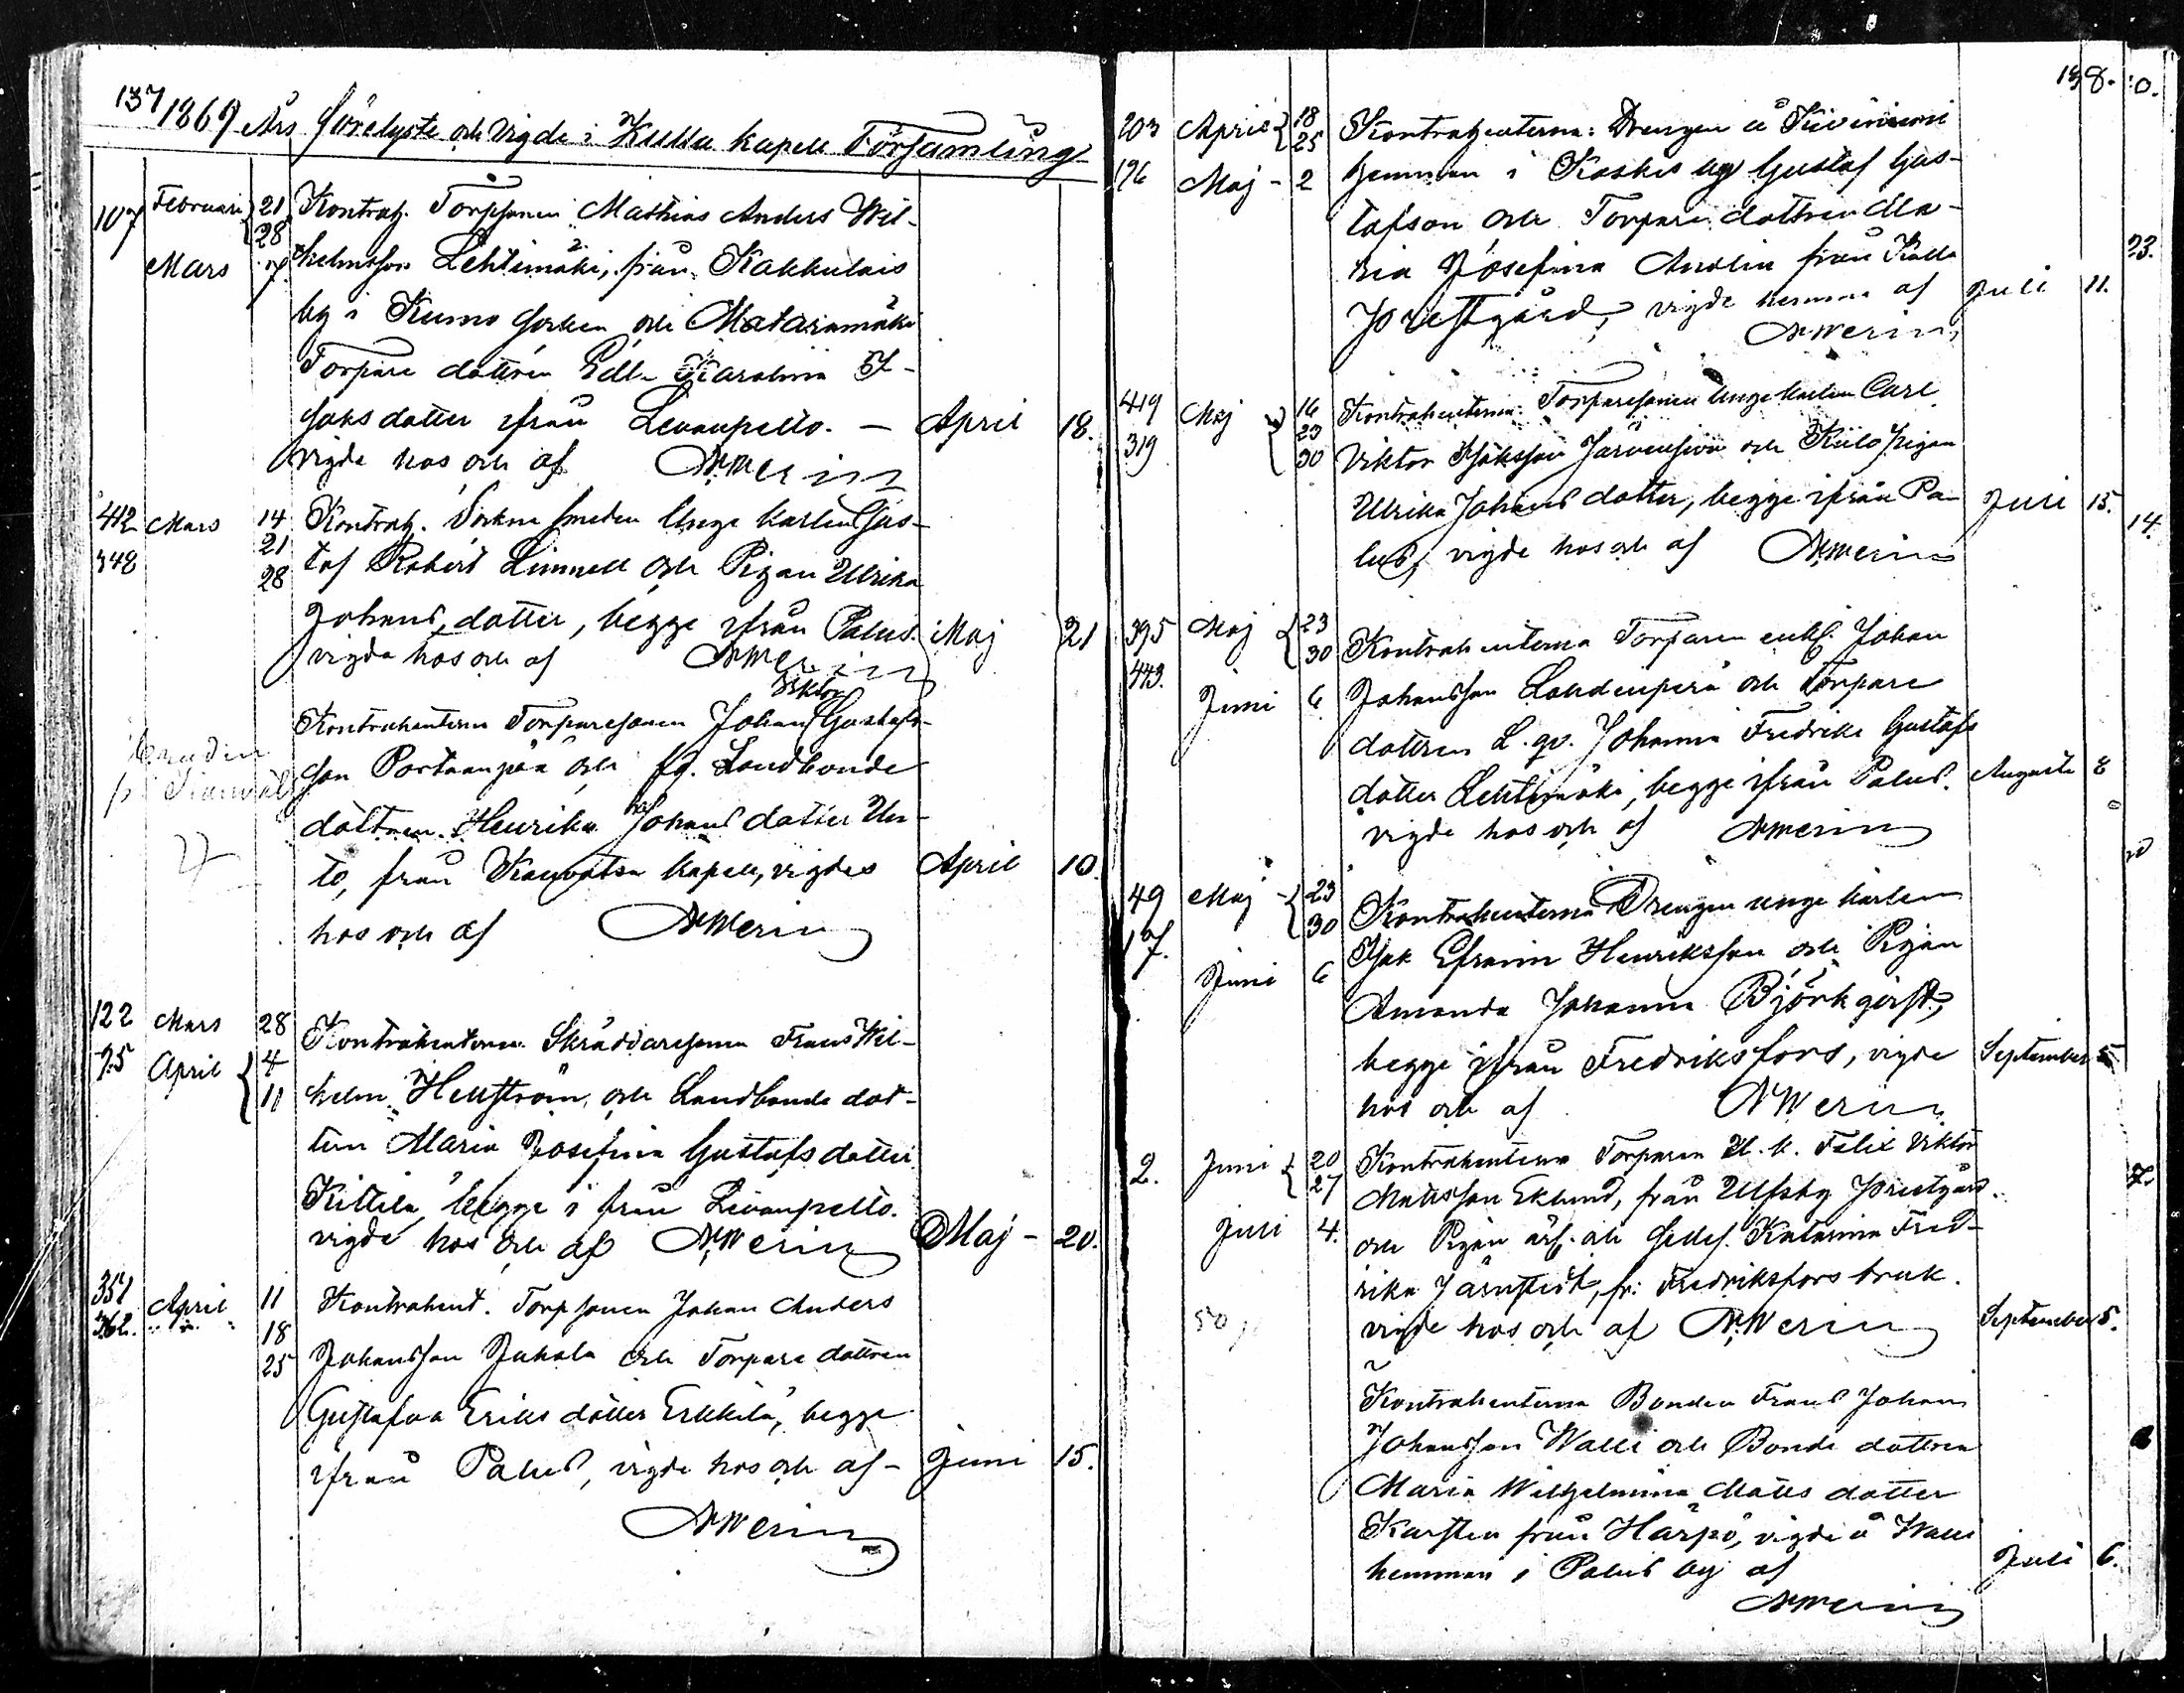 137 1869 Års Förelyste och Vigde i Kullaa kapell Församling
107 Februari 21 Kontrah. Torpsonen Mathias Anders Wil-
28
Mars 7. helmsson Lehtimäki, från Kakkulais
by i Kumo socken och Mataramäki
Torpare dottren Edla Karolina I-
saks dotter ifrån Levanpelto. — April 18.
vigde hos och af A. Merin
412 Mars 14 Kontrah. Sockne smeden Unge karlen Gus-
21
348 28 taf Robert Linnell och Pigan Ulrika
Johans dotter, begge ifrån Palus. Maj 21
vigda hos och af A. Merin
Viktor
Kontrahenterna Torparesonen Johan Gustafs-
son Portaanpää och fg. Landbonde
dottren Henrika Johans dotter Un-
to, från Kauvatsa kapell, vigdes April 10.
hos och af A. Merin
122 Mars 28 Kontrahenterna Skräddaresonen Frans Wil-
75 April 4
11 helm Hellström, och Landbonde dot-
tren Maria Josefina Gustafs dotter
Kittelä, begge i från Levanpelto.
vigde hos och af A. Merin Maj - 20.
357 April 11 Kontrahent. Torpsonen Johan Anders
362. 18
25 Johansson Jukola och Torpare dottren
Gustafva Eriks dotter Erkkilä, begge
ifrån Palus, vigde hos och af - Juni 15.
A. Merin
138.
203 April 18 Kontrahenterna: Drengen å Kiviniemi
25
176 Maj - 2 hemman i Koskis by Gustaf Gus-
tafson och Torpare dottren Ma-
ria Josefina Andlin från Kulla
Prestgård, vigde hemma af Juli 11.
A. Merin
419 Maj 16 Kontrahenterna: Torparesonen Unge karlen Carl
23
319 30 Viktor Isaksson Järvensivu och Kulo pigan
Ulrika Johans dotter, begge ifrån Pa- Juli 15.
lus, vigde hos och af A. Merin
395 Maj 23
30 Kontrahenterna Torparen enkl. Johan
443. Juni 6 Johansson Lahdenperä och Torpare
dottren L. qv. Johanna Fredrika Gustafs
dotter Lehtimäki, begge ifrån Palus. Augusti 8
vigde hos och af A. Merin
49 Maj - 23
17. 30 Kontrahenterna Drengen unge karlen
Juni 6 Isak Efraim Henriksson och Pigan
Amanda Johanna Björkqvist,
begge ifrån Fredriksfors, vigde September 5
hos och af A. Merin
2. Juni 20 Kontrahenterna Torparen U. k. Felix Viktor
27 Mattsson Eklund, från Ulfsby Prestgård.
Juli 4. och Pigan ärl. och sedes. Katarina Fred-
rika Järnstedt, fr: Fredriksfors bruk.
50 vigde hos och af A. Merin September 5.
Kontrahenterna Bonden Frans Johan
Johansson Walli och Bonde dottren
Maria Wilhelmina Matts dotter
Karsten från Harpö, vigde å Walli
hemman i Palus by af Juli 6.
A. Merin